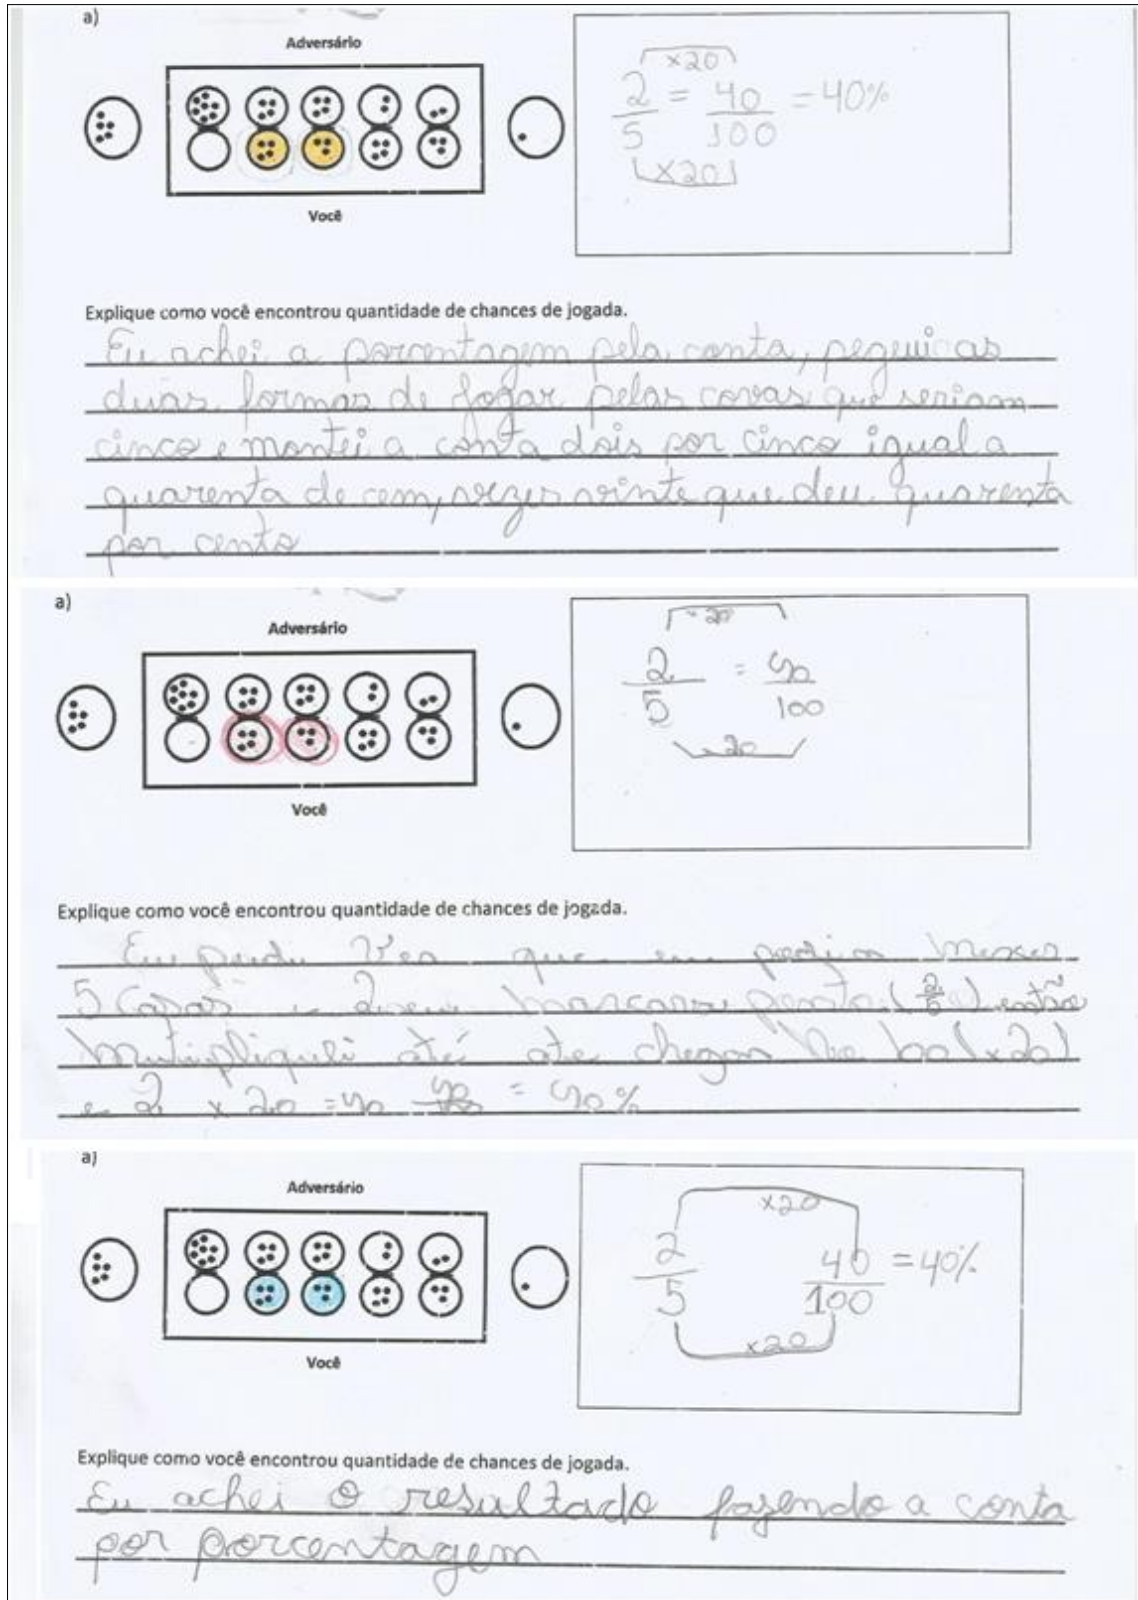 a)
Adversário
Você
×20
2/5 = 40/100 = 40%
×20
Explique como você encontrou quantidade de chances de jogada.
Eu achei a porcentagem pela conta, peguei as
duas formas de jogar pelas covas que seriam
cinco e montei a conta dois por cinco igual a
quarenta de cem, vezes vinte que deu quarenta
por cento
a)
Adversário
Você
20
2/5 = 40/100
20
Explique como você encontrou quantidade de chances de jogada.
Eu pude ver que eu podia mexer
5 casas e 2 marcava ponto (2/5) então
até ate chegar (×20)
e 2 × 20 = 40 40/100 = 40%
a)
Adversário
Você
×20
2/5 40/100 = 40%
×20
Explique como você encontrou quantidade de chances de jogada.
Eu achei o resultado fazendo a conta
por porcentagem